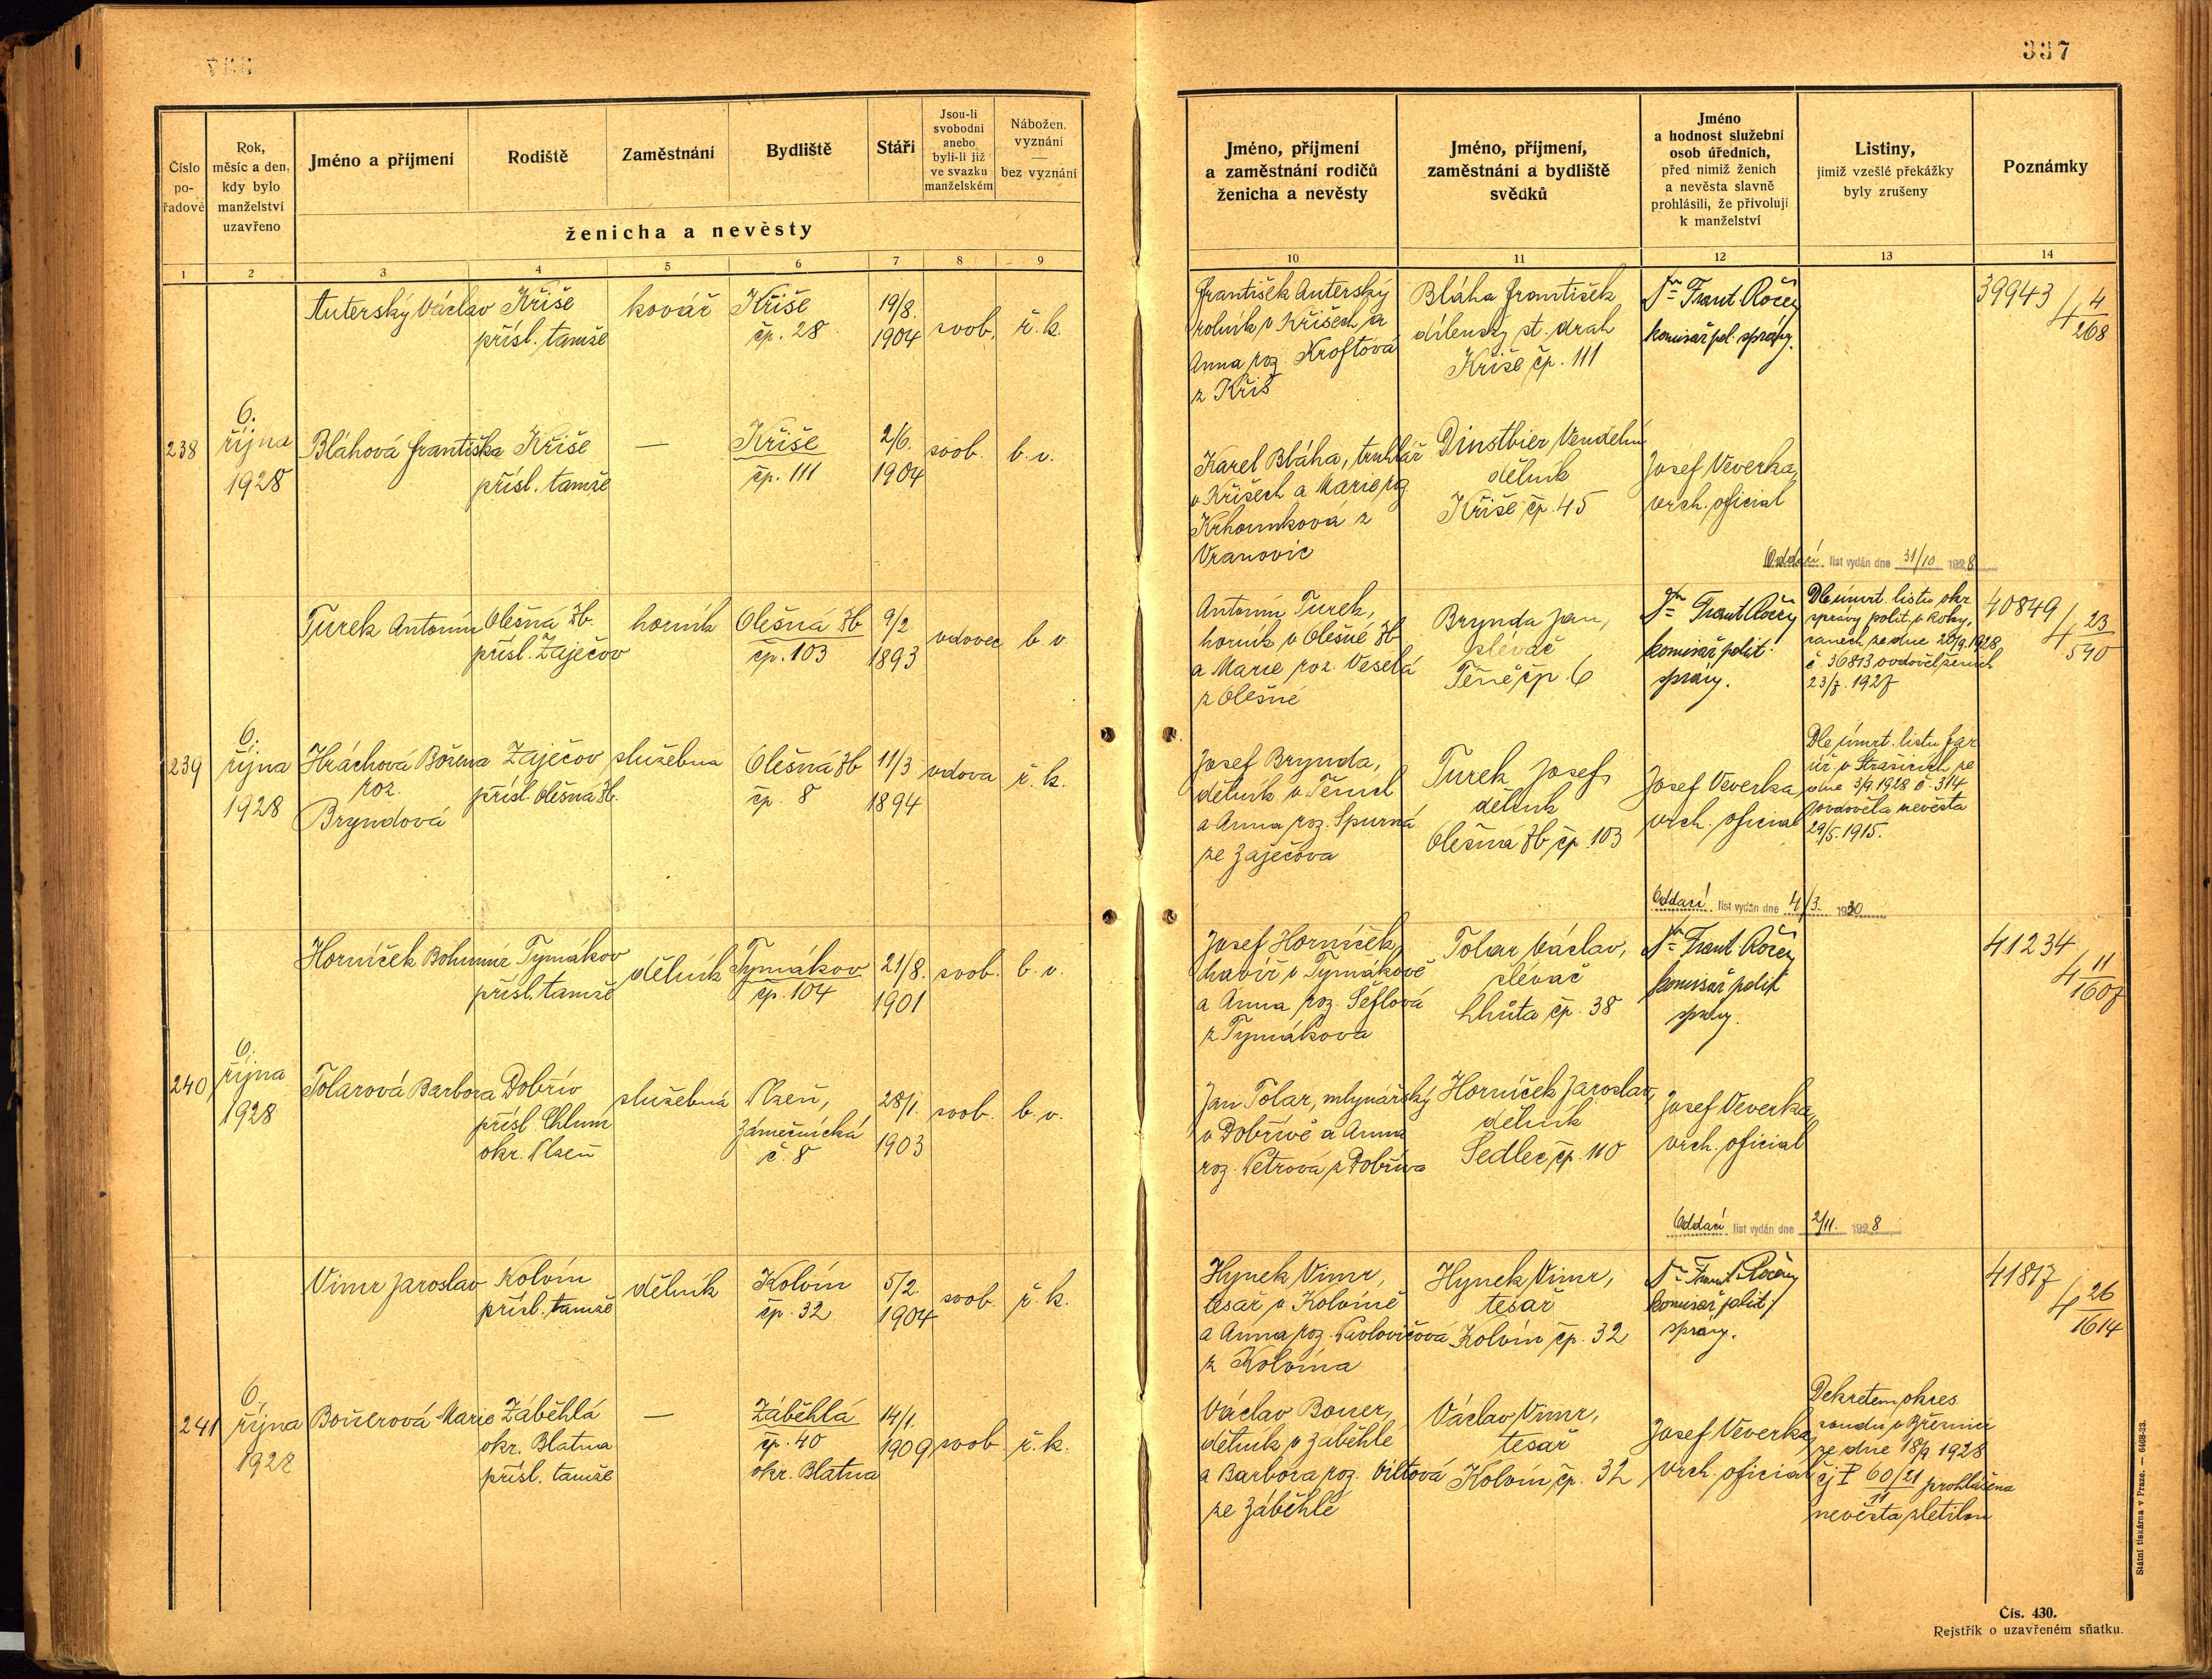 337
Číslo pořadové
Rok, měsíc a den, kdy bylo manželství uzavřeno
Jméno a příjmení
Rodiště
Zaměstnání
Bydliště
Stáří
Jsou-li svobodni anebo byli-li již ve svazku manželském
Nábožen. vyznání — bez vyznání
ženicha a nevěsty
1 2 3 4 5 6 7 8 9
Jméno, příjmení a zaměstnání rodičů ženicha a nevěsty
Jméno, příjmení, zaměstnání a bydliště svědků
Jméno a hodnost služební osob úředních, před nimiž ženich a nevěsta slavně prohlásili, že přivolují k manželství
Listiny, jimiž vzešlé překážky byly zrušeny
Poznámky
10 11 12 13 14
238
6.
října
1928
Auterský Václav
Kříše
přísl. tamže
kovář
Kříše
čp. 28
19/8.
1904
svob.
ř. k.
František Auterský
rolník v Kříších a
Anna roz. Kroftová
z Kříš
Bláha František
dílenský st. drah
Kříše čp. 111
Dr Frant. Ročen
komisař pol. správy.
39943
4 4/268
Bláhová Františka
Kříše
přísl. tamže
—
Kříše
čp. 111
2/6.
1904
svob.
b. v.
Karel Bláha, truhlář
v Kříších a Marie roz.
z
Vranovic
Dinstbier Vendelín
dělník
Kříše čp. 45
Josef Veverka,
vrch. oficial
Oddací list vydán dne 31/10 1928
239
6.
října
1928
Turek Antonín
Olešná Zb.
přísl. Zaječov
horník
Olešná Zb
čp. 103
9/2
1893
vdovec
b. v.
Antonín Turek,
horník v Olešné Zb
a Marie roz. Veselá
z Olešné
Brynda Jan,
slévač
Těně čp. 6
Dr Frant. Ročen
komisař polit.
správy.
Dle úmrt. listu okr.
správy polit. v Roky-
canech ze dne 20/9.1928
č. 36813 ovdověl ženich
23/7. 1927
40849
4 23/540
Hráchová Božena
roz.
Bryndová
Zaječov
přísl. Olešná Zb.
služebná
Olešná Zb
čp. 8
11/3
1894
vdova
ř. k.
Josef Brynda,
dělník v Těních
a Anna roz. Spurná
ze Zaječova
Turek Josef,
dělník
Olešná Zb čp. 103
Josef Veverka,
vrch. oficial
Dle úmrt. listu far.
úř. v Strašicích ze
dne 3/9.1928 č. 314
ovdověla nevěsta
29/5. 1915.
Oddací list vydán dne 4/3. 1930
240
6.
října
1928
Horníček Bohumír
Tymákov
přísl. tamže
dělník
Tymákov
čp. 104
21/8.
1901
svob.
b. v.
Josef Horníček,
havíř v Tymákově
a Anna roz. Šéflová
z Tymákova
Tolar Václav,
slévač
Lhůta čp. 38
Dr Frant. Ročen
komisař polit
správy.
41234
4 11/1607
Tolarová Barbora
Dobřív
přísl. Chlum
okr. Plzeň
služebná
Plzeň,
Zámečnická
č. 8
28/1.
1903
svob.
b. v.
Jan Tolar, mlynářský
v Dobřívě a Anna
roz. Petrová z Dobříva
Horníček Jaroslav,
dělník
Sedlec čp. 110
Josef Veverka,
vrch. oficial
Oddací list vydán dne 2/11. 1928
241
6.
října
1928
Vimr Jaroslav
Kolvín
přísl. tamže
dělník
Kolvín
čp. 32
5/2.
1904
svob.
ř. k.
Hynek Vimr,
tesař v Kolvíně
a Anna roz. Pavlovičová
z Kolvína
Hynek Vimr,
tesař
Kolvín čp. 32
Dr Frant. Ročen
komisař polit.
správy.
41817
4 26/1614
Bouerová Marie
Záběhlá
okr. Blatna
přísl. tamže
—
Záběhlá
čp. 40
okr. Blatna
14/1.
1909
svob
ř. k.
Václav Bouer,
dělník v Záběhlé
a Barbora roz. Viltová
ze Záběhlé
Václav Vimr,
tesař
Kolvín čp. 32
Josef Veverka,
vrch. oficial
Dekretem okres.
soudu v Březnici
ze dne 18/9 1928
čj P 60/21 prohlášena
11
nevěsta zletilou
Státní tiskárna v Praze. — 6408-23.
Čís. 430.
Rejstřík o uzavřeném sňatku.